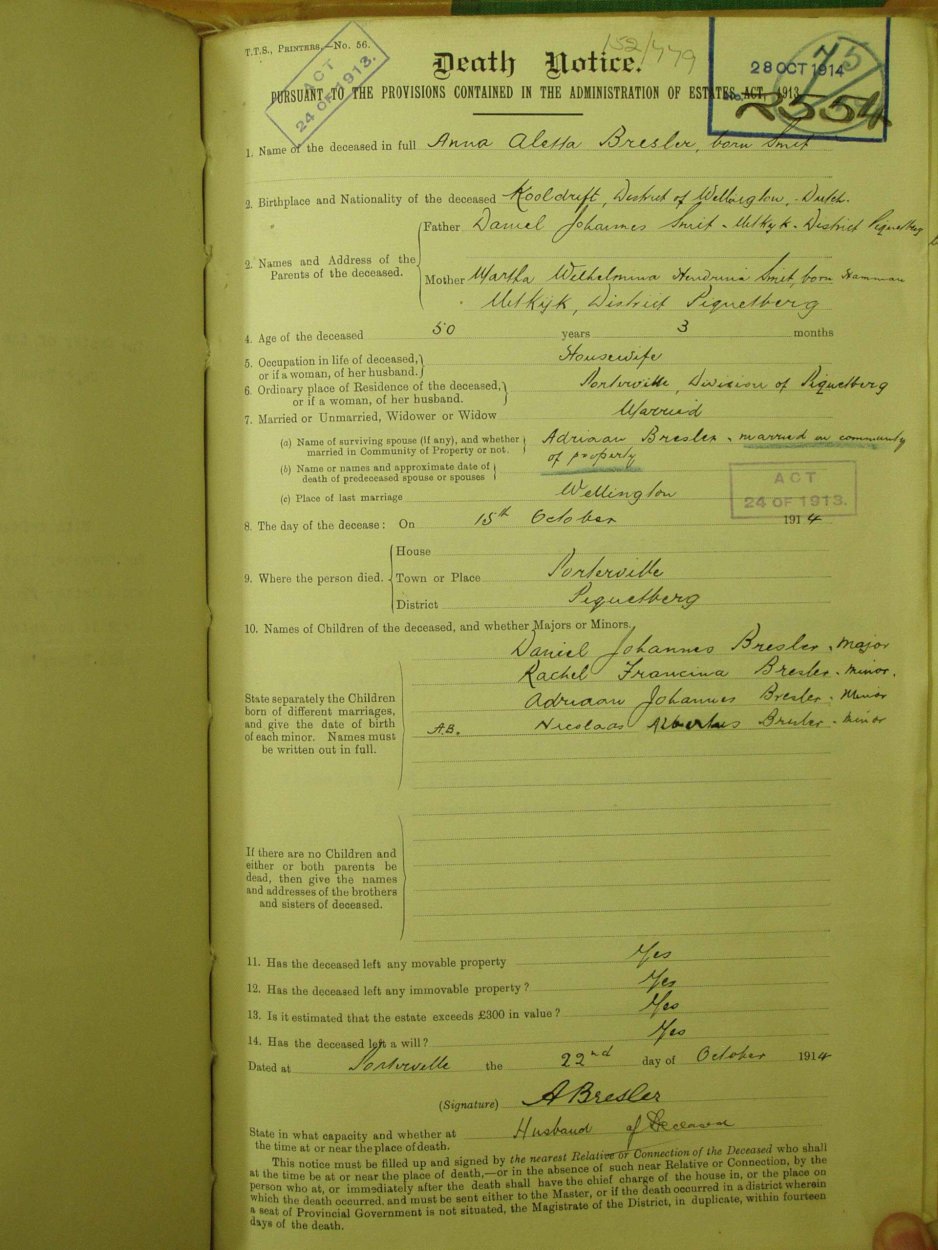 T.T.S., PRINTERS,—No. 56.
152/779
ACT
24 OF 1913.
Death Notice.
28 OCT 1914
75
2554
PURSUANT TO THE PROVISIONS CONTAINED IN THE ADMINISTRATION OF ESTATES ACT, 1913
1. Name of the deceased in full Anna Aletta Bresler, born Smit
2. Birthplace and Nationality of the deceased Kooldrift, District of Wellington, Dutch.
2. Names and Address of the Parents of the deceased.
Father Daniel Johannes Smit - Uitkyk - District Piquetberg
Mother Martha Wilhelmina Hendrina Smit, born Hamman
Uitkyk, District Piquetberg
4. Age of the deceased 50 years 3 months
5. Occupation in life of deceased, Housewife
or if a woman, of her husband.
6. Ordinary place of Residence of the deceased, Porterville, Division of Piquetberg
or if a woman, of her husband.
7. Married or Unmarried, Widower or Widow Married
(a) Name of surviving spouse (if any), and whether Adriaan Bresler - married in community
married in Community of Property or not. of property
(b) Name or names and approximate date of
death of predeceased spouse or spouses
(c) Place of last marriage Wellington
ACT
24 OF 1913.
8. The day of the decease: On 15th October 1914
9. Where the person died.
House
Town or Place Porterville
District Piquetberg
10. Names of Children of the deceased, and whether Majors or Minors.
Daniel Johannes Bresler - Major
Rachel Francina Bresler - Minor.
Adriaan Johannes Bresler - Minor
A.B. Nicolaas Albertus Bresler - Minor
State separately the Children
born of different marriages,
and give the date of birth
of each minor. Names must
be written out in full.
If there are no Children and
either or both parents be
dead, then give the names
and addresses of the brothers
and sisters of deceased.
11. Has the deceased left any movable property Yes
12. Has the deceased left any immovable property? Yes
13. Is it estimated that the estate exceeds £300 in value? Yes
14. Has the deceased left a will? Yes
Dated at Porterville the 22nd day of October 1914
(Signature) ABresler
State in what capacity and whether at Husband of Deceased
the time at or near the place of death.
This notice must be filled up and signed by the nearest Relative or Connection of the Deceased who shall
at the time be at or near the place of death,—or in the absence of such near Relative or Connection, by the
person who at, or immediately after the death shall have the chief charge of the house in, or the place on
which the death occurred, and must be sent either to the Master, or if the death occurred in a district wherein
a seat of Provincial Government is not situated, the Magistrate of the District, in duplicate, within fourteen
days of the death.